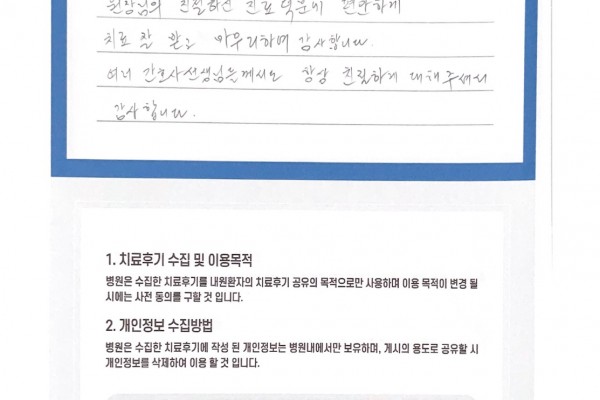 원장님의 친절하신 진료 덕분에 편안하게
치료 잘 받고 마무리하여 감사합니다.
여러 간호사선생님들께서도 항상 친절하게 대해주셔서
감사합니다.
1. 치료후기 수집 및 이용목적
병원은 수집한 치료후기를 내원환자의 치료후기 공유의 목적으로만 사용하며 이용 목적이 변경 될
시에는 사전 동의를 구할 것 입니다.
2. 개인정보 수집방법
병원은 수집한 치료후기에 작성 된 개인정보는 병원내에서만 보유하며, 게시의 용도로 공유할 시
개인정보를 삭제하여 이용 할 것 입니다.